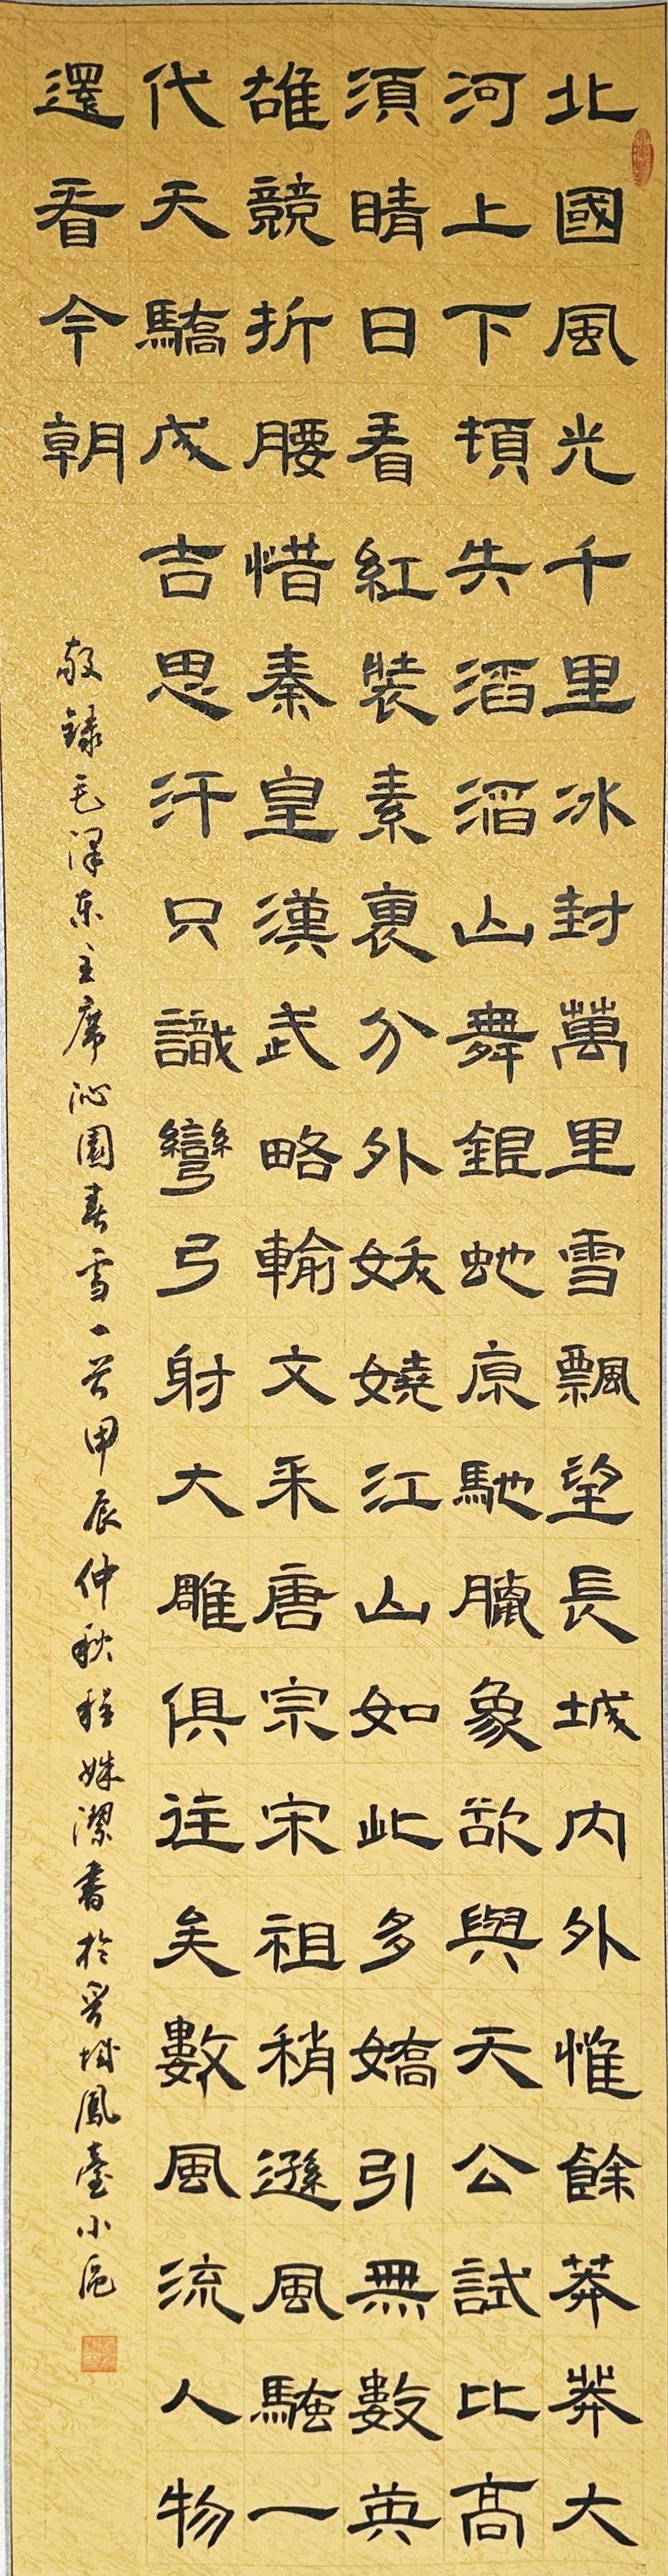 北國風光千里冰封萬里雪飄望長城内外惟餘莽莽大
河上下頓失滔滔山舞銀虵原馳臘象欲與天公試比高
須睛日看紅裝素裹分外妖嬈江山如此多嬌引無數英
雄競折腰惜秦皇漢武略輸文采唐宗宋祖稍遜風騷一
代天驕成吉思汗只識彎弓射大雕俱往矣數風流人物
還看今朝
敬録毛澤东主席沁園春雪一首甲辰仲秋程姝潔書於晋城鳳臺小區